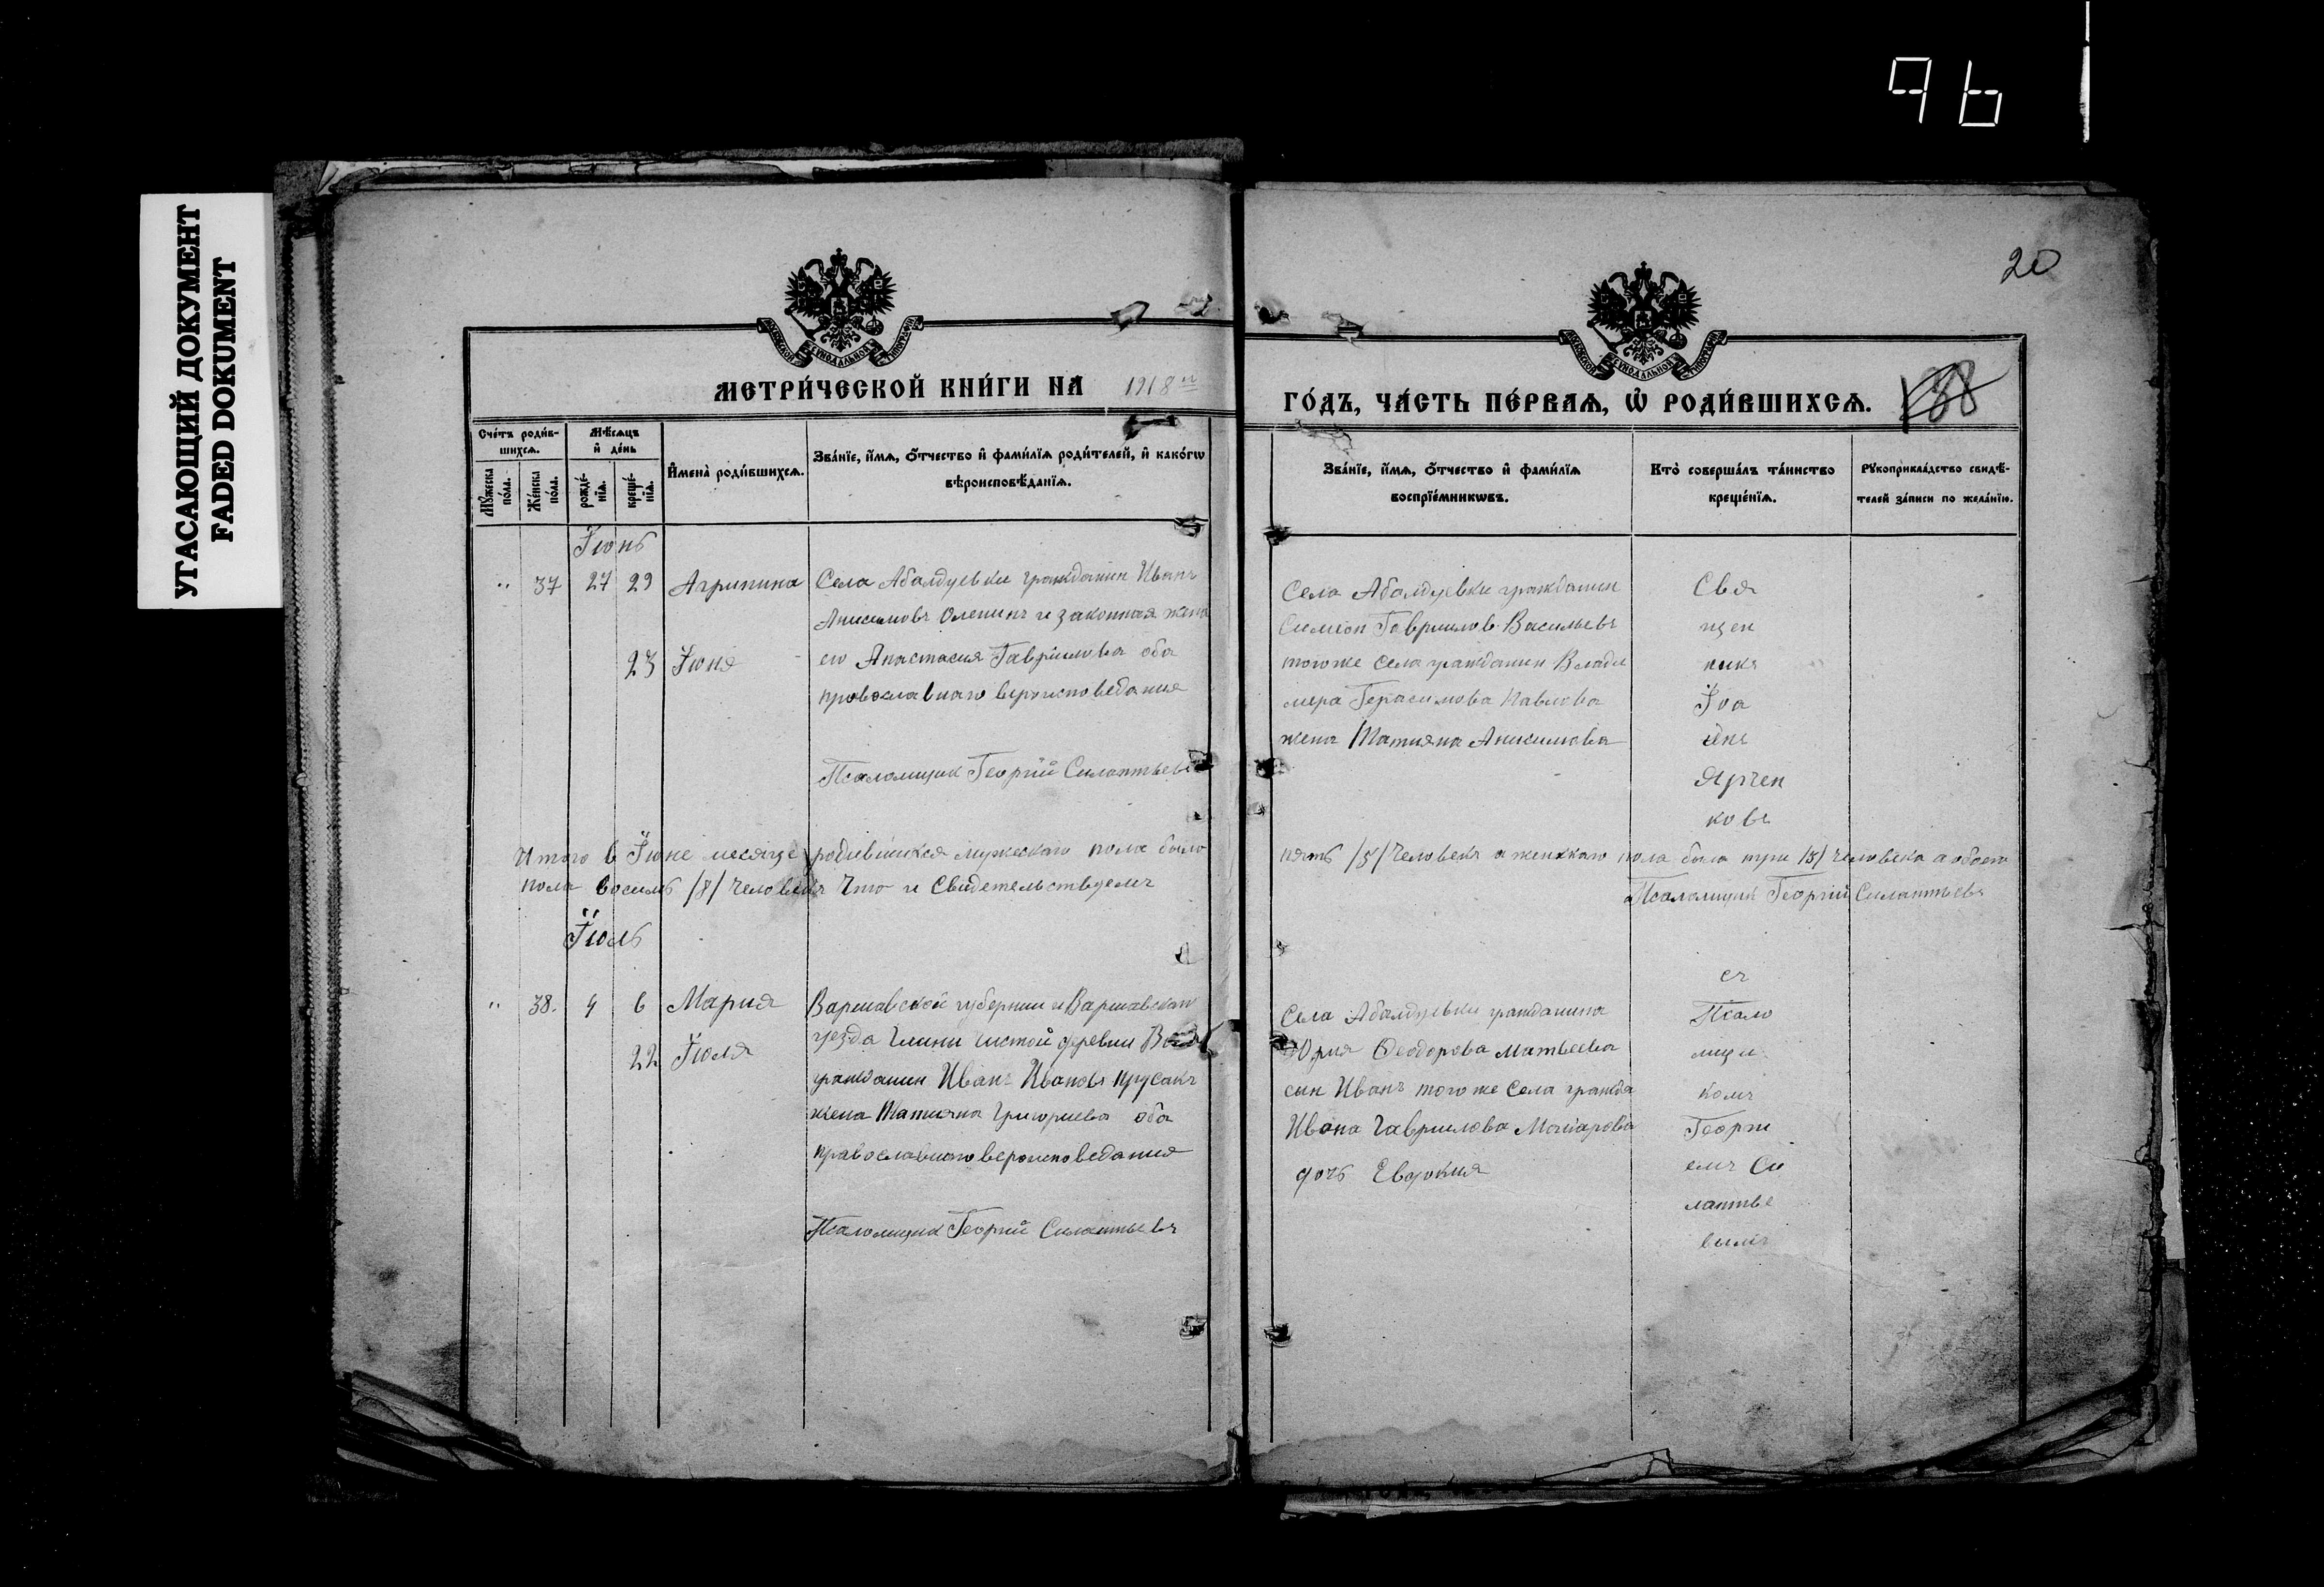 96
УГАСАЮЩИЙ ДОКУМЕНТ
FADED DOKUMENT
20
МОСКОВСКОЙ СѴНОДАЛЬНОЙ ТИПОГРАФІИ
МОСКОВСКОЙ СѴНОДАЛЬНОЙ ТИПОГРАФІИ
МЕТРИ́ЧЕСКОЙ КНИ́ГИ НА 1918 г.
ГО́ДЪ, ЧА́СТЬ ПЕ́РВАЯ, Ѡ҆ РОДИ́ВШИХСЯ.
138
Сче́тъ роди́в-
шихся.
Мꙋ́жеска по́ла.
Же́нска по́ла.
Мѣ́сяцъ
и҆ де́нь
рожде́-нїя.
креще́-нїя.
И҆мена̀ роди́вшихся.
Зва́нїе, и҆́мя, ѻ҆́тчество и҆ фами́лїя роди́телей, и҆ како́гѡ
вѣроисповѣ́данїя.
Зва́нїе, и҆́мя, ѻ҆́тчество и҆ фами́лїя
воспрїе́мникѡвъ.
Кто̀ соверша́лъ та́инство
креще́нїя.
Рꙋкоприкла́дство свидѣ́-
телей за́писи по жела́нїю.
Іюнь
" 37 27 29 Агрипина Села Абалдуевки гражданин Иванъ
Анисимовъ Оленинъ и законная жена
23 Іюня его Анастасия Гаврилова оба
православнаго вероисповедания
Псаломщик Георгій Силантьевъ
Села Абалдуевки гражданин
Симион Гаврилов Васильевъ
того же села гражданин Влади
мера Герасимова Павлова
жена Татияна Анисимова
Свя
щен
никъ
Іоа
ннъ
Ярчен
ковъ
Итого в Іюне месяце родившихся мужескаго пола было пять /5/ Человекъ а женскаго пола было три /3/ человека а обоего
пола восемь /8/ Человекъ Что и Свидетельствуемъ Псаломщик Георгій Силантьевъ
Іюль
" 38. 4 6 Мария Варшавской губернии и Варшавскаго
22 Іюля уезда Глини чистой деревни
гражданин Иванъ Ивановъ Крусакъ
жена Татияна Григориева оба
православнаго вероисповедания
Псаломщик Георгий Силантьевъ
Села Абалдуевки гражданина
Юрия Феодорова Матвеева
сын Иванъ того же Села гражда
Ивана Гаврилова
дочь Евдокия
съ
Псало
мщи
комъ
Георги
емъ Си
лантье
вымъ